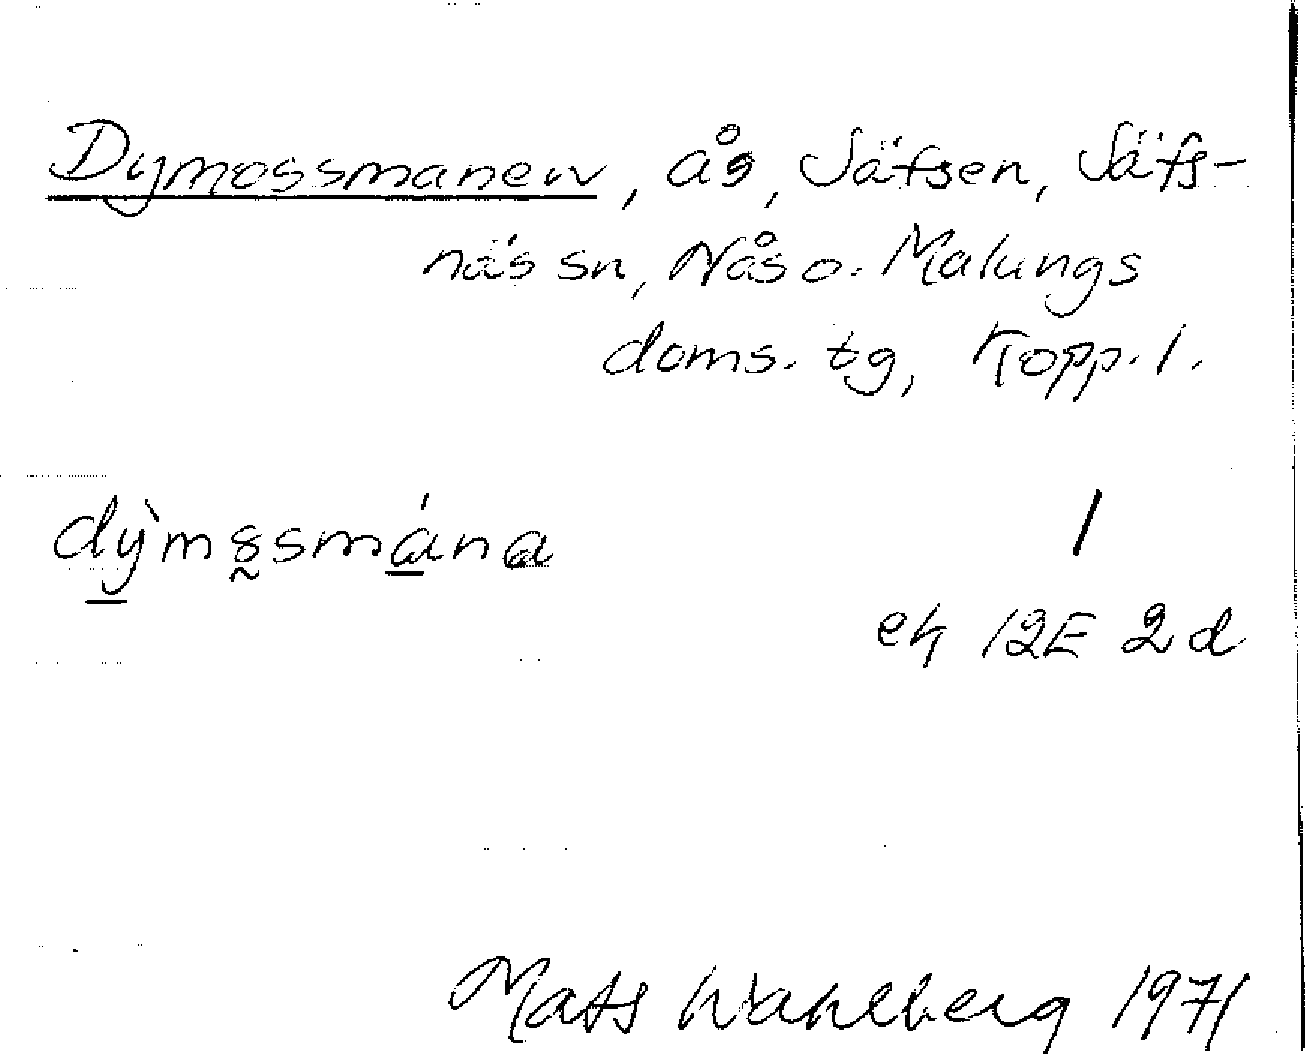 Dymossmanen, ås, Säfsen, Säfs-
näs sn, Nås o. Malungs
doms. tg, Kopp. l.
dỳmsmána
1
ek 12E 2d
Mats Wahlberg 1971